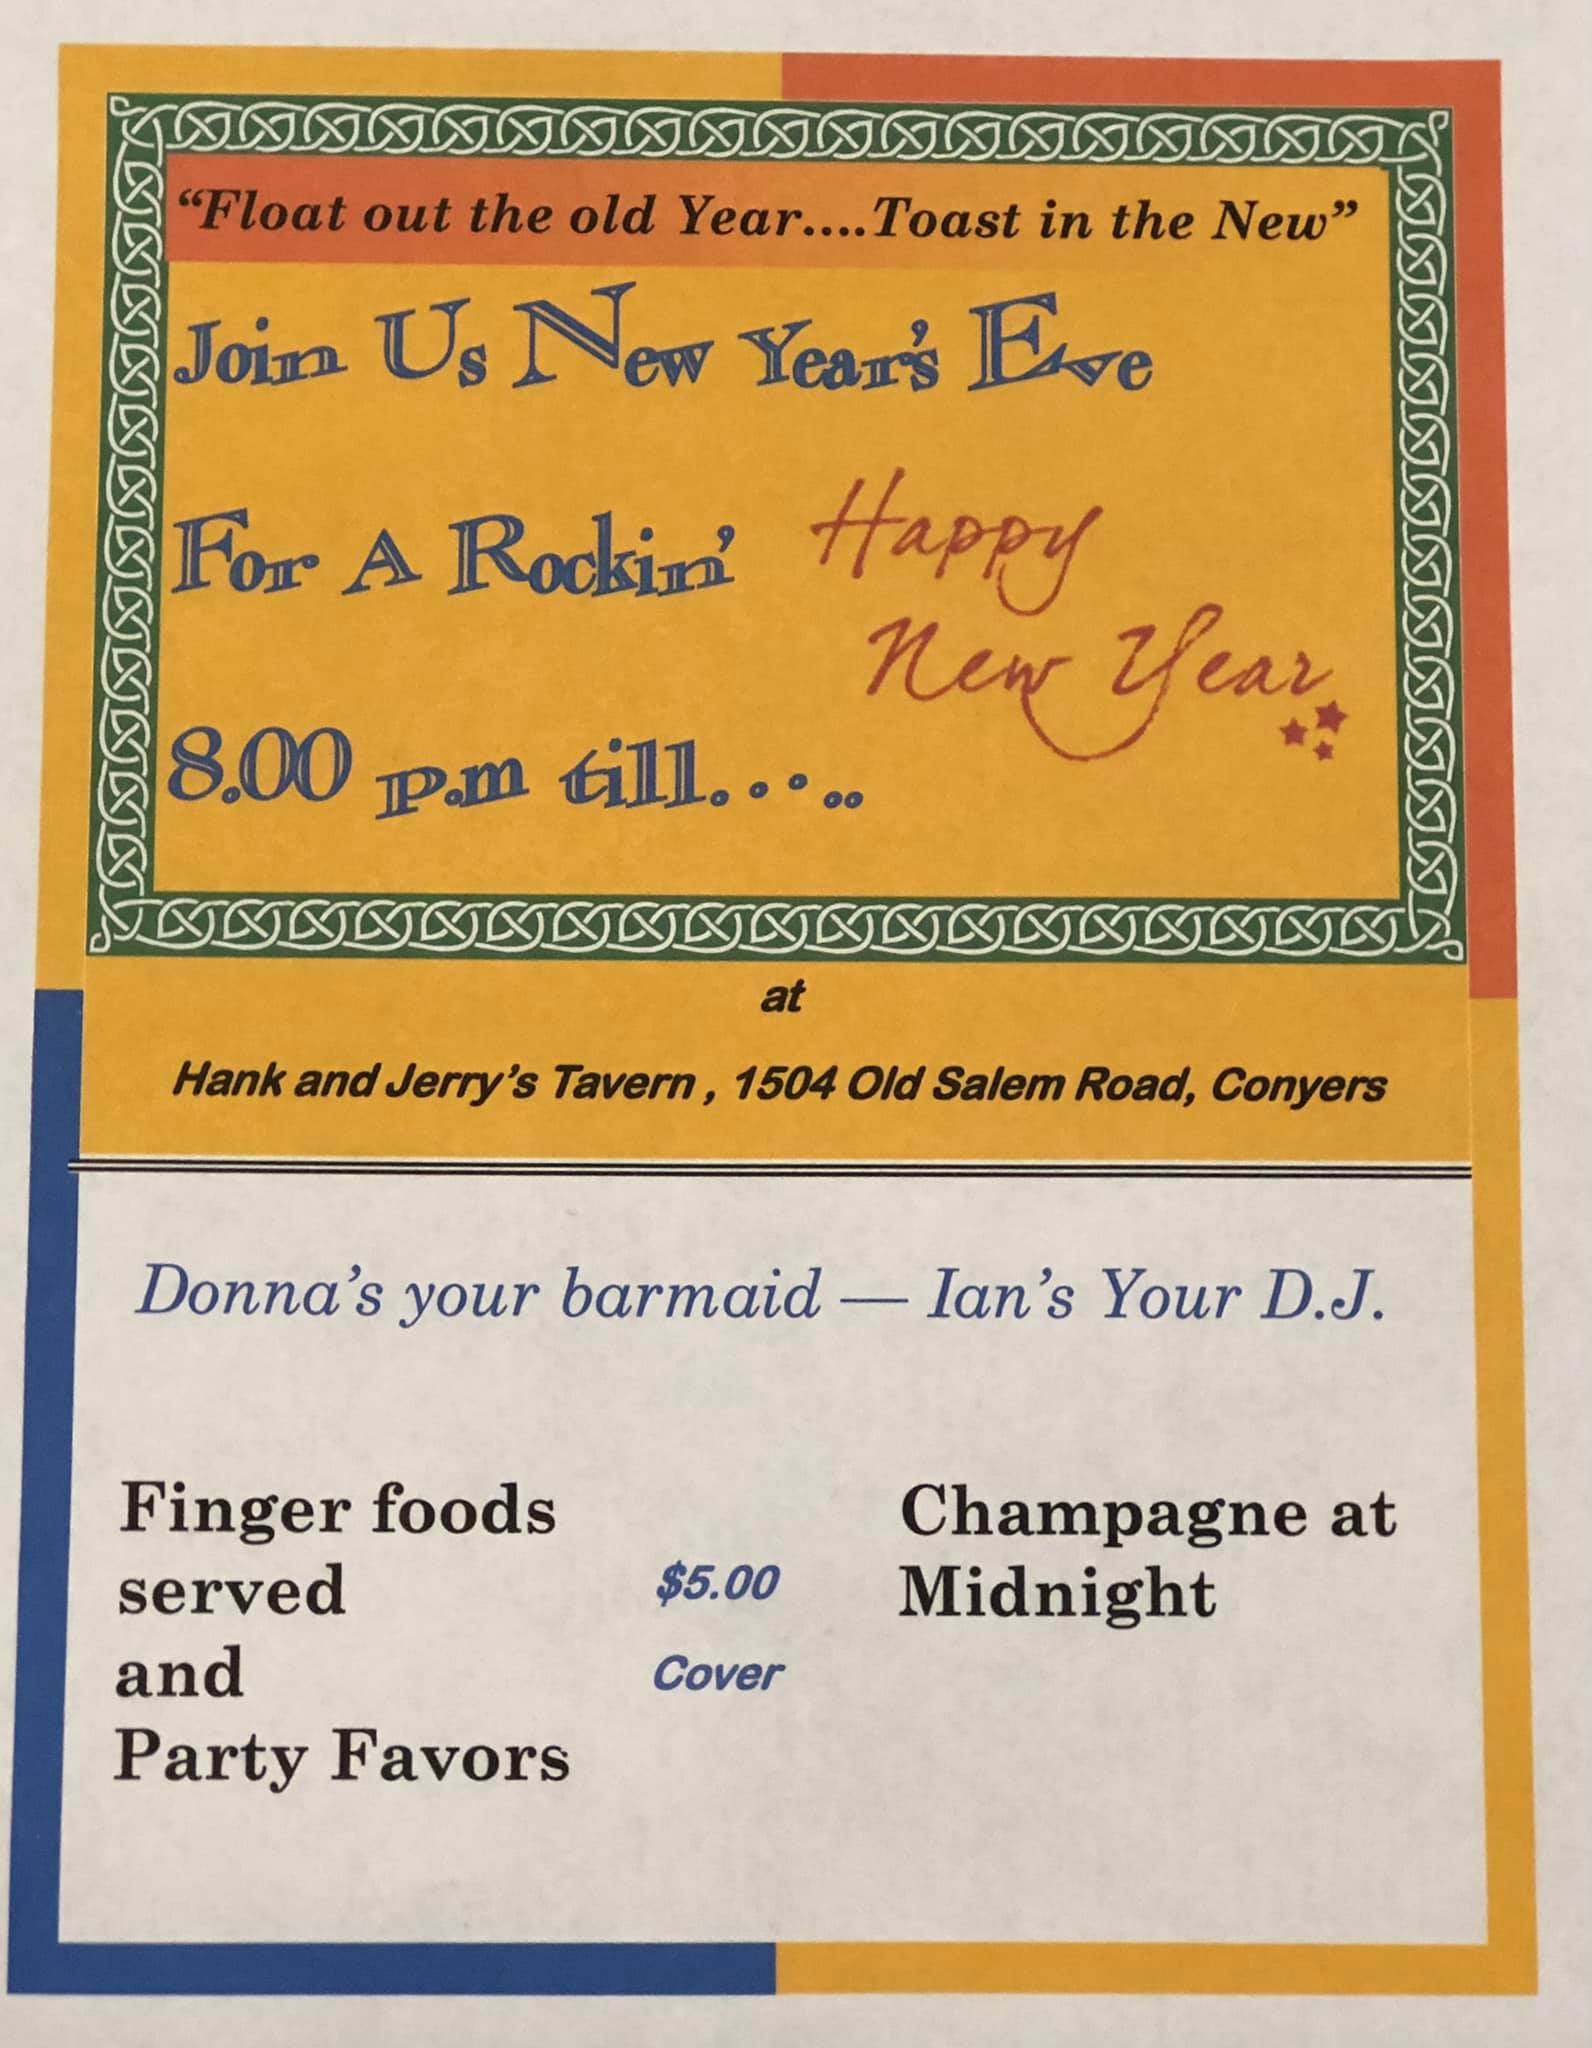 “Float out the old Year....Toast in the New”
Join Us New Year's Eve
For A Rockin'
Happy
New Year
8.00 p.m till.....
at
Hank and Jerry's Tavern , 1504 Old Salem Road, Conyers
Donna's your barmaid — Ian's Your D.J.
Finger foods
served
and
Party Favors
$5.00
Cover
Champagne at
Midnight